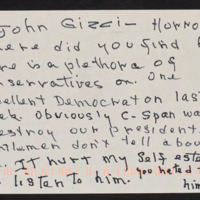 John Gizzi - Horro
here did you find
re is a plethora of
nservatives on. One
ellent Democrat on las
ek. Obviously C-Span wa
estroy our president.
ntlemen don't tell abou
. It hurt my Self este
listen to him. you hated t
him